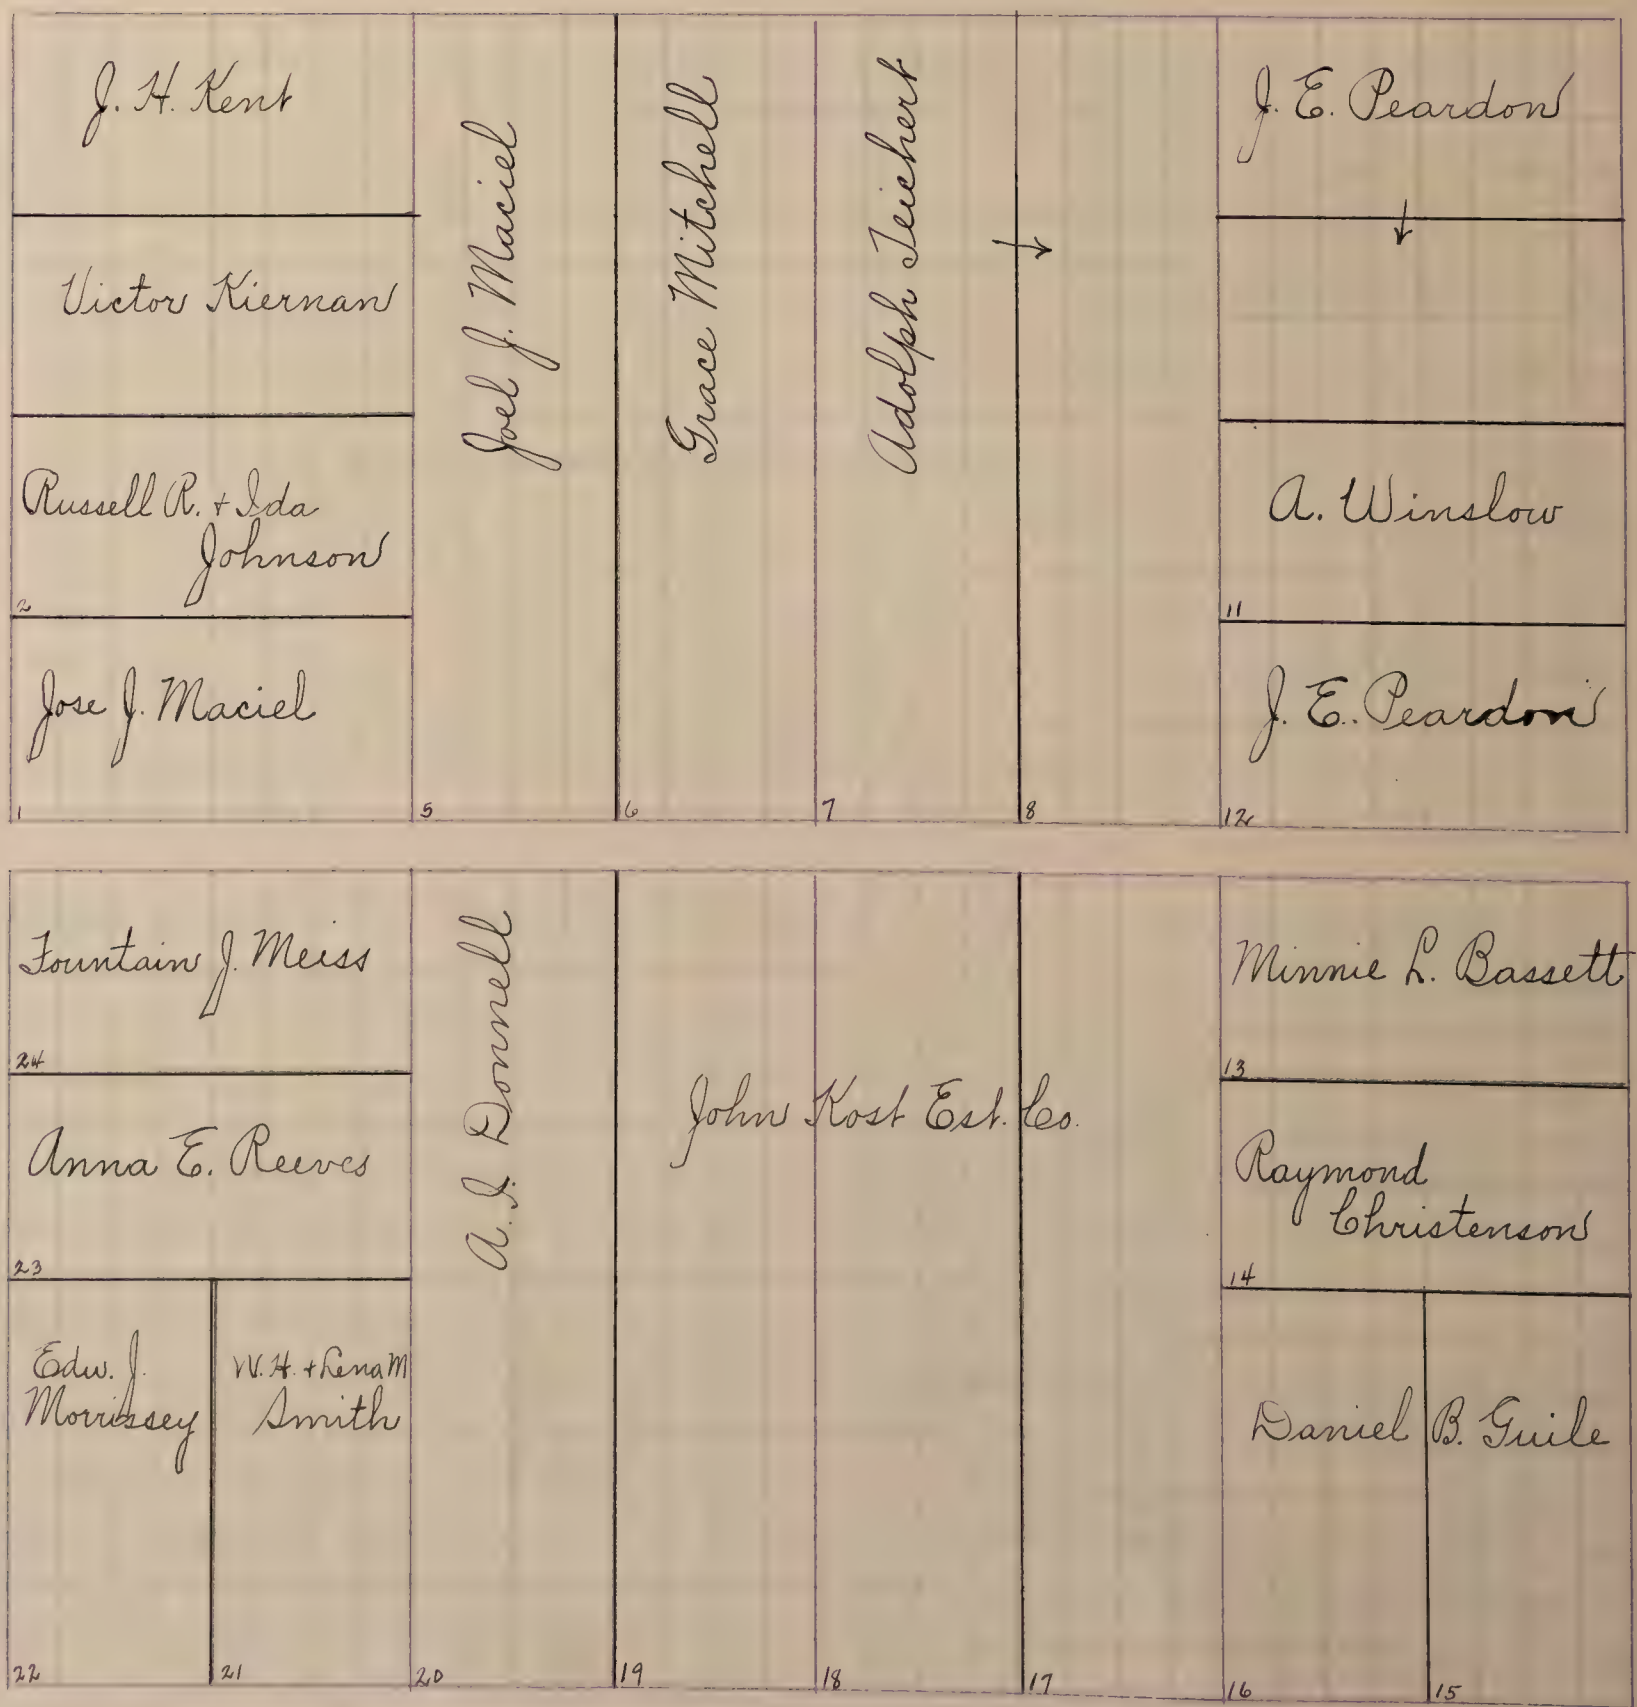 J. H. Kent
Victor Kiernan
Russell R. + Ida
Johnson
2
Jose J. Maciel
1
Joel J. Maciel
5
Grace Mitchell
6
Adolph Teichert
7
8
J. E. Peardon
A. Winslow
11
J. E. Peardon
12
Fountain J. Meiss
24
Anna E. Reeves
23
Edw. J.
Morrissey
22
W. H. + Lena M
Smith
21
A. I. Donnell
20
John Kost Est. Co.
19
18
17
Minnie L. Bassett
13
Raymond
Christenson
14
Daniel B. Guile
16
15